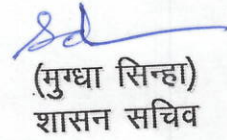 (मुग्धा सिन्हा)
शासन सचिव